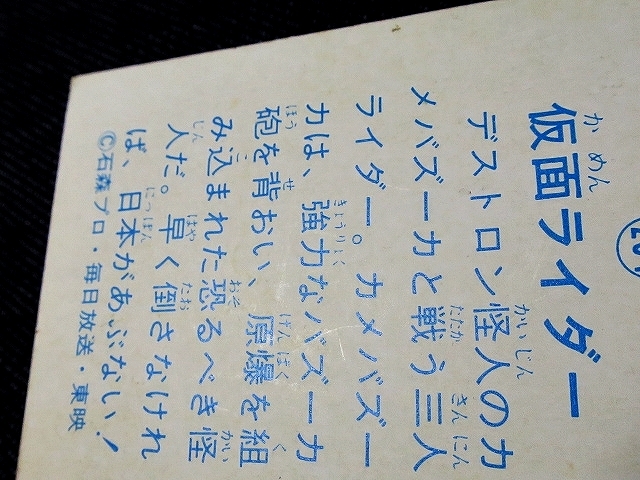 仮面ライダー
デストロン怪人のカ
メバズーカと戦う三人
ライダー。カメバズー
カは、強力なバズーカ
砲を背おい、原爆を組
み込まれた恐るべき怪
人だ。早く倒さなけれ
ば、日本があぶない！
©石森プロ・毎日放送・東映